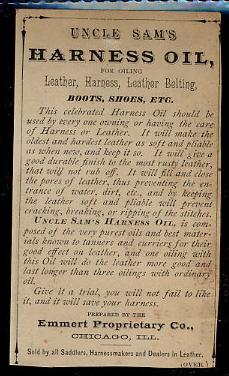 UNCLE SAM'S
HARNESS OIL,
FOR OILING
Leather, Harness, Leather Belting,
BOOTS, SHOES, ETC.
This celebrated Harness Oil should be
used by every one owning or having the care
of Harness or Leather. It will make the
oldest and hardest leather as soft and pliable
as when new, and keep it so. It will give a
good durable finish to the most rusty leather,
that will not rub off. It will fill and close
the pores of leather, thus preventing the en-
trance of water, dirt, etc., and by keeping
the leather soft and pliable will prevent
cracking, breaking, or ripping of the stitches.
UNCLE SAM'S HARNESS OIL, is com-
posed of the very purest oils and best mater-
ials known to tanners and curriers for their
good effect on leather, and one oiling with
this Oil will do the leather more good and
last longer than three oilings with ordinary
oil.
Give it a trial, you will not fail to like
it, and it will save your harness.
PREPARED BY THE
Emmert Proprietary Co.,
CHICAGO, ILL.
Sold by all Saddlers, Harnessmakers and Dealers in Leather.
(OVER.)